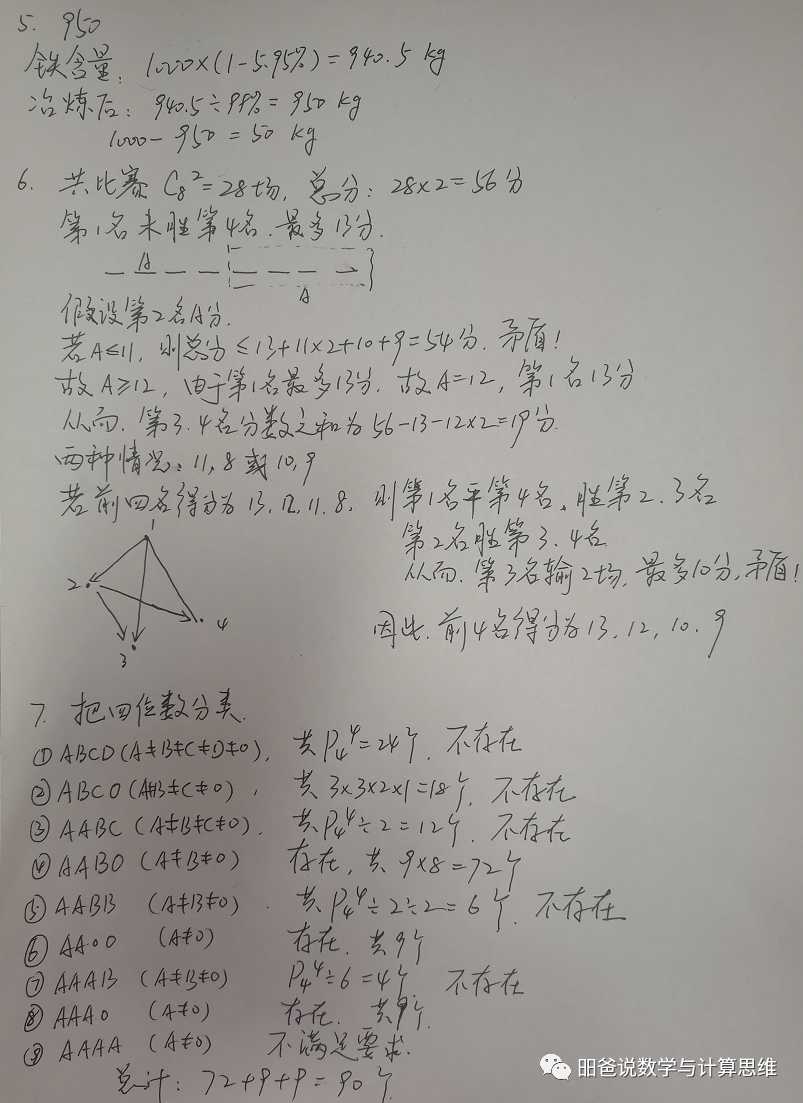 5. 950
铁含量: 1000×(1-5.95%)=940.5 kg
冶炼后: 940.5÷99%=950 kg
1000-950=50 kg
6. 共比赛 C₈²=28场, 总分: 28×2=56分
第1名未胜第4名. 最多13分.
A
A
假设第2名A分.
若A≤11, 则总分≤13+11×2+10+9=54分. 矛盾!
故A≥12, 由于第1名最多13分. 故A=12, 第1名13分
从而. 第3.4名分数之和为56-13-12×2=19分.
两种情况: 11,8 或 10,9
若前四名得分为13,12,11,8, 则第1名平第4名, 胜第2.3名
第2名胜第3.4名
从而. 第3名输2场, 最多10分, 矛盾!
1
2
3
4
因此. 前4名得分为13, 12, 10, 9
7. 把四位数分类.
① ABCD(A≠B≠C≠D≠0), 共P₄⁴=24个. 不存在
② ABC0(A≠B≠C≠0), 共3×3×2×1=18个, 不存在
③ AABC (A≠B≠C≠0). 共P₄⁴÷2=12个. 不存在
④ AAB0 (A≠B≠0) 存在, 共9×8=72个
⑤ AABB (A≠B≠0). 共P₄⁴÷2÷2=6个. 不存在
⑥ AA00 (A≠0) 存在. 共9个
⑦ AAAB (A≠B≠0) P₄⁴÷6=4个 不存在
⑧ AAA0 (A≠0) 存在. 共9个.
⑨ AAAA (A≠0) 不满足要求.
总计: 72+9+9=90个.
昍爸说数学与计算思维